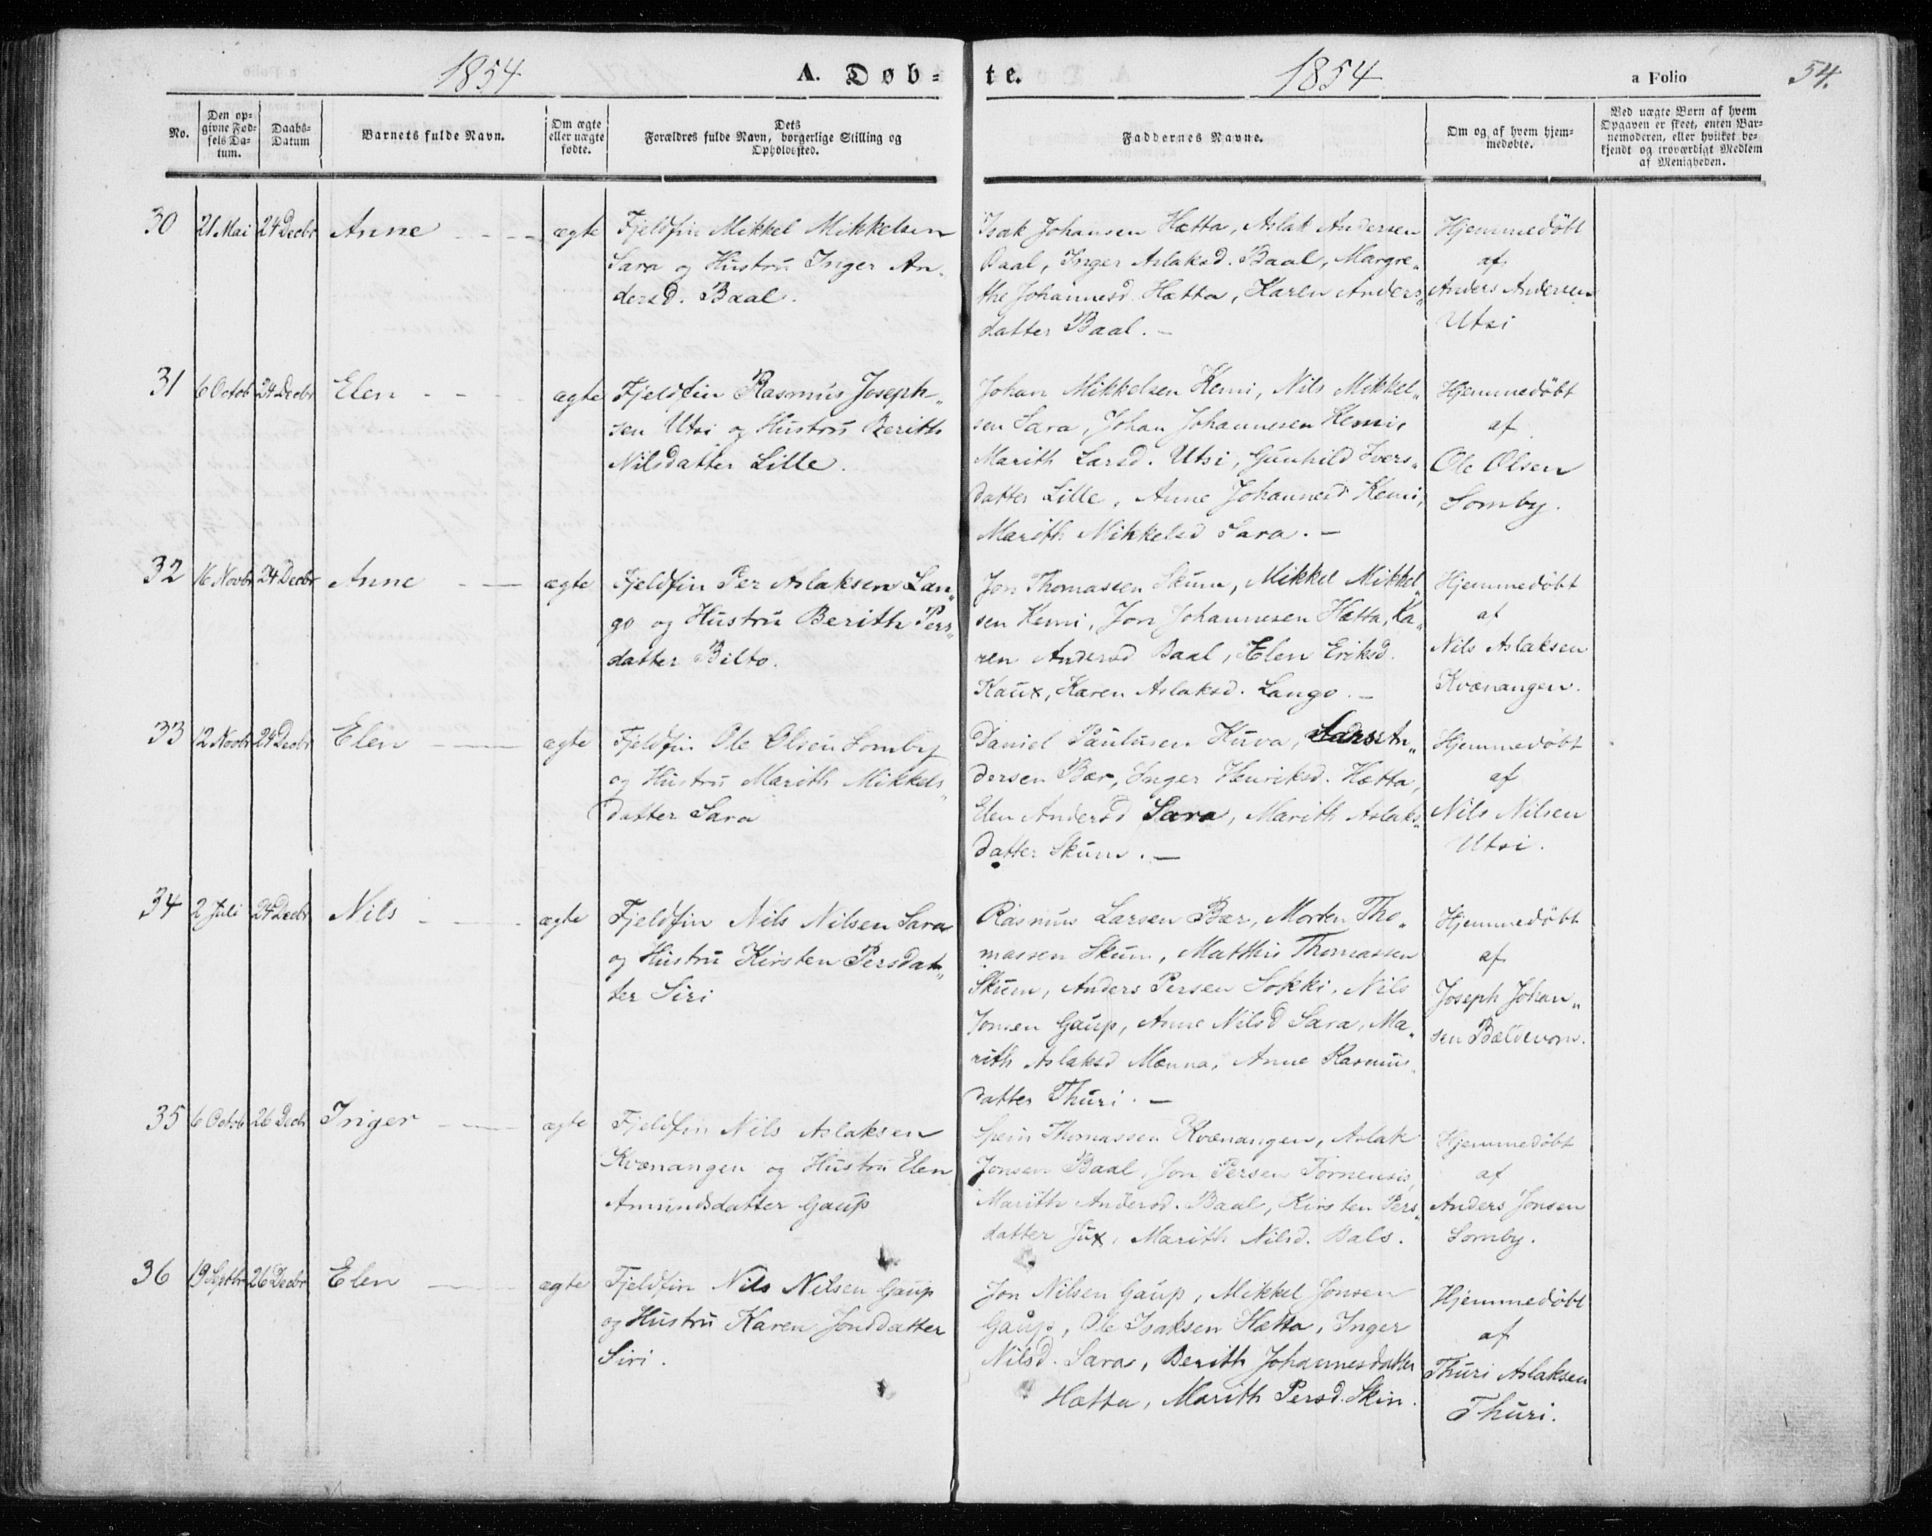 1854 A. Døb- te. 1854 a Folio 54.
No.
Den op-
givne Fød-
sels Da-
tum.
Daabs-
Datum
Barnets fulde Navn.
Om ægte
eller uægte
fødte.
Dets
Forældres fulde Navn, borgerlige Stilling og
Opholdssted.
Faddernes Navne.
Om og af hvem hjem-
medøbte.
Ved uægte Børn af hvem
Opgaven er skeet, enten Bar-
nemoderen, eller hvilket be-
kjendt og troværdigt Medlem
af Menigheden.
30 21 Mai 24 Decbr Anne ægte
Fjeldfin Mikkel Mikkelsen
Sara og Hustru Inger An-
dersd. Baal.
Isak Johansen Hætta, Aslak Andersen
Baal, Inger Aslaksd. Baal, Margre-
the Johannesd. Hætta, Karen Anders-
datter Baal. —
Hjemmedöbt
af
Anders Andersen
Utsi
31 6 Octob 24 Decbr Elen ægte
Fjeldfin Rasmus Joseph-
sen Utsi og Hustru Berith
Nilsdatter Lille.
Johan Mikkelsen Kemi, Nils Mikkel-
sen Sara, Johan Johannesen Kemi,
Marith Larsd. Utsi, Gunhild Ivers-
datter Lille, Anne Johannesd Kemi,
Marith Mikkelsd Sara. —
Hjemmedöbt
af
Ole Olsen
Somby.
32 16 Novbr 24 Decbr Anne ægte
Fjeldfin Per Aslaksen Lan-
go og Hustru Berith Pers-
datter Bilto.
Jon Thomassen Skum, Mikkel Mikkel-
sen Kemi, Jon Johannesen Hætta, Ka-
ren Andersd Baal, Elen Eriksd.
Kaux, Karen Aslaksd. Lango. —
Hjemmedöbt
af
Nils Aslaksen
Kvænangen.
33 12 Novbr 24 Decbr Elen ægte
Fjeldfin Ole Olsen Somby
og Hustru Marith Mikkels-
datter Sara
Daniel Paulusen Kuva, Lars An-
dersen Bær, Inger Henriksd. Hætta,
Elen Andersd Sara, Marith Aslaks-
datter Skum. —
Hjemmedöbt
af
Nils Nilsen
Utsi.
34 2 Juli 24 Decbr Nils ægte
Fjeldfin Nils Nilsen Sara
og Hustru Kirsten Persdat-
ter Siri
Rasmus Larsen Bær, Morten Tho-
massen Skum, Matthis Thomassen
Skum, Anders Persen Sokki, Nils
Jonsen Gaup, Anne Nilsd Sara, Ma-
rith Aslaksd Mænna, Anne Rasmus-
datter Thuri. —
Hjemmedöbt
af
Joseph Johan-
sen Bældevom.
35 6 Octob 26 Decbr Inger ægte
Fjeldfin Nils Aslaksen
Kvænangen og Hustru Elen
Amundsdatter Gaup
Spein Thomassen Kvænangen, Aslak
Jonsen Baal, Jon Persen Tornensis,
Marith Andersd. Baal, Kirsten Pers-
datter Jux, Marith Nilsd. Bals.
Hjemmedöbt
af
Anders Jonsen
Somby.
36 19 Septbr 26 Decbr Elen ægte
Fjeldfin Nils Nilsen Gaup
og Hustru Karen Jonsdatter
Siri.
Jon Nilsen Gaup, Mikkel Jonsen
Gaup, Ole Isaksen Hætta, Inger
Nilsd. Sara, Berith Johannesdatter
Hætta, Marith Persd. Skin.
Hjemmedöbt
af
Thuri Aslaksen
Thuri.